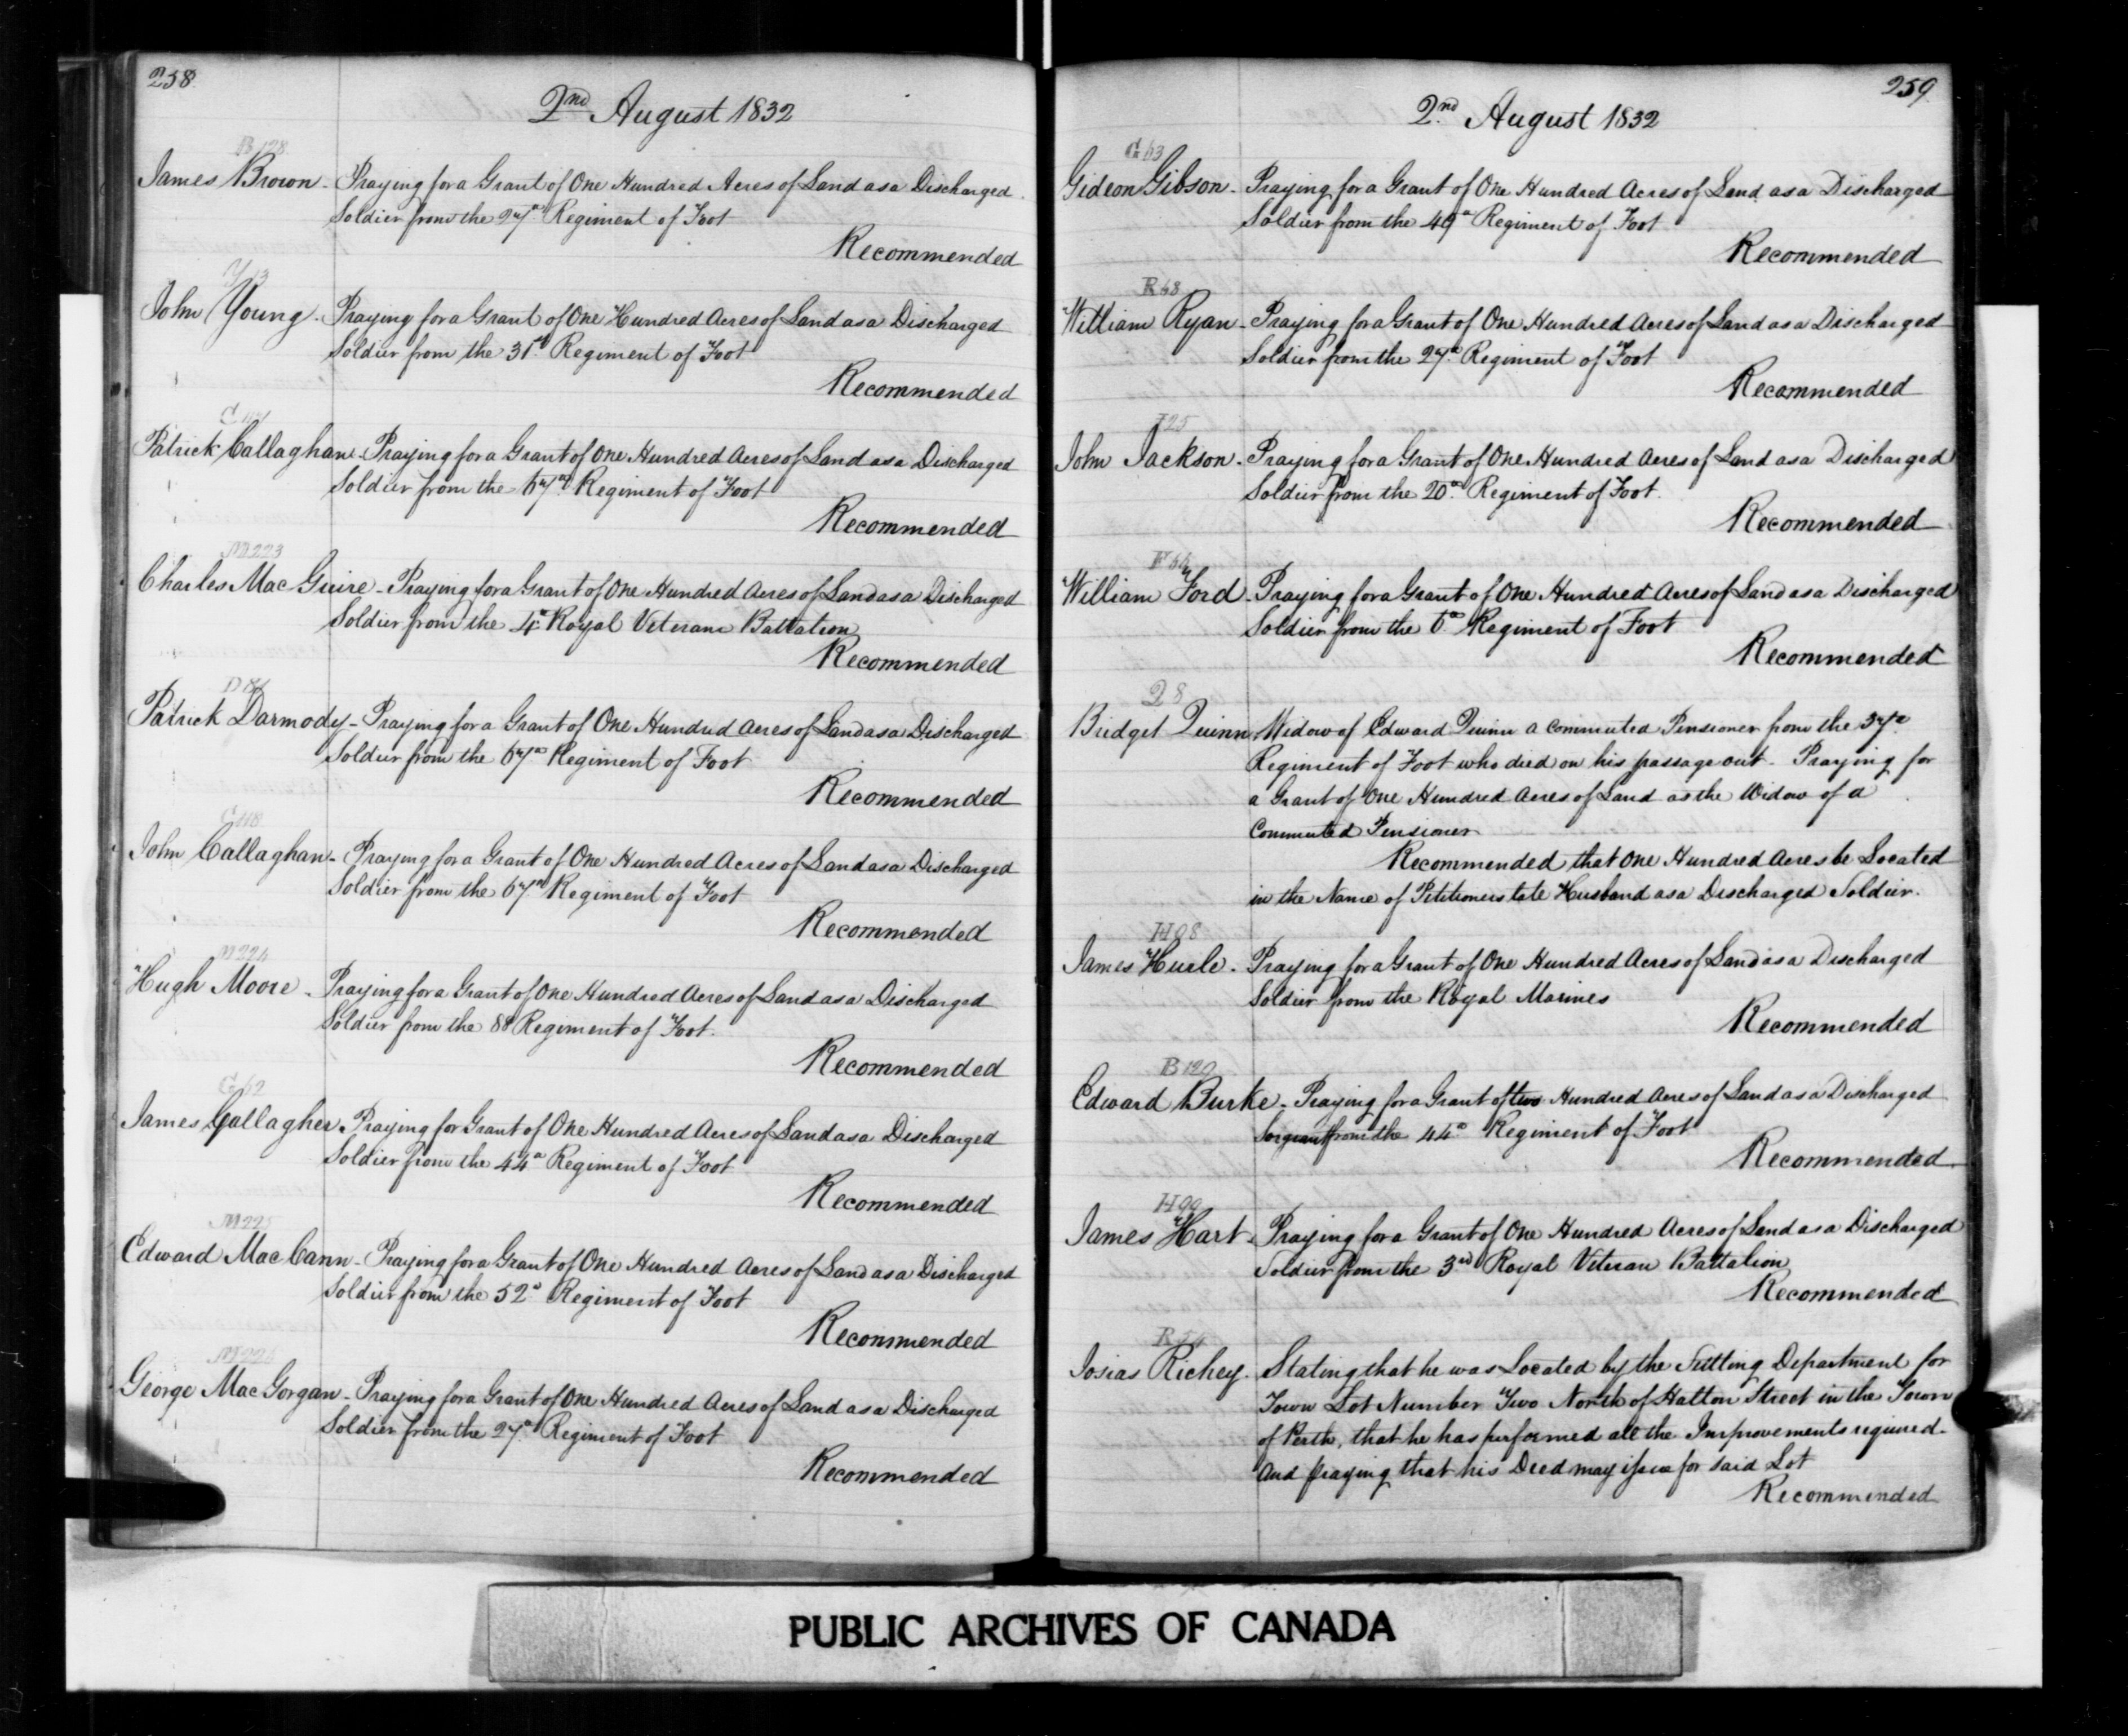 258
2nd August 1832
B 128
James Brown - Praying for a Grant of One Hundred Acres of Land as a Discharged
Soldier from the 27th Regiment of Foot
Recommended
Y 13
John Young - Praying for a Grant of One Hundred Acres of Land as a Discharged
Soldier from the 31st Regiment of Foot
Recommended
Patrick Callaghan - Praying for a Grant of One Hundred Acres of Land as a Discharged
Soldier from the 67th Regiment of Foot
Recommended
M 223
Charles Mac Guire - Praying for a Grant of One Hundred Acres of Land as a Discharged
Soldier from the 4th Royal Veteran Battalion
Recommended
Patrick Darmody - Praying for a Grant of One Hundred Acres of Land as a Discharged
Soldier from the 67th Regiment of Foot
Recommended
C 118
John Callaghan - Praying for a Grant of One Hundred Acres of Land as a Discharged
Soldier from the 67th Regiment of Foot
Recommended
M 224
Hugh Moore - Praying for a Grant of One Hundred Acres of Land as a Discharged
Soldier from the 88 Regiment of Foot.
Recommended
G 62
James Gallagher Praying for Grant of One Hundred Acres of Land as a Discharged
Soldier from the 44th Regiment of Foot
Recommended
M 225
Edward Mac Cann - Praying for a Grant of One Hundred Acres of Land as a Discharged
Soldier from the 52d Regiment of Foot
Recommended
M 226
George Mac Gorgan - Praying for a Grant of One Hundred Acres of Land as a Discharged
Soldier from the 27th Regiment of Foot
Recommended
259
2nd August 1832
G 63
Gideon Gibson - Praying for a Grant of One Hundred Acres of Land as a Discharged
Soldier from the 49th Regiment of Foot
Recommended
R 48
William Ryan - Praying for a Grant of One Hundred Acres of Land as a Discharged
Soldier from the 27th Regiment of Foot
Recommended
J 25
John Jackson - Praying for a Grant of One Hundred Acres of Land as a Discharged
Soldier from the 20th Regiment of Foot.
Recommended
William Ford - Praying for a Grant of One Hundred Acres of Land as a Discharged
Soldier from the 6th Regiment of Foot
Recommended
Q 8
Bridget Quinn Widow of Edward Quinn a commuted Pensioner from the 37th
Regiment of Foot who died on his passage out - Praying for
a Grant of One Hundred Acres of Land as the Widow of a
Commuted Pensioner
Recommended that One Hundred Acres be Located
in the Name of Petitioners late Husband as a Discharged Soldier.
H 98
James Hurle - Praying for a Grant of One Hundred Acres of Land as a Discharged
Soldier from the Royal Marines
Recommended
B 129
Edward Burke - Praying for a Grant of two Hundred Acres of Land as a Discharged
Sergeant from the 44th Regiment of Foot
Recommended
H 99
James Hart - Praying for a Grant of One Hundred Acres of Land as a Discharged
Soldier from the 3rd Royal Veteran Battalion
Recommended
Josias Richey - Stating that he was Located by the Settling Department for
Town Lot Number Two North of Halton Street in the Town
of Perth, that he has performed all the Improvements required -
And praying that his Deed may issue for said Lot
Recommended
PUBLIC ARCHIVES OF CANADA